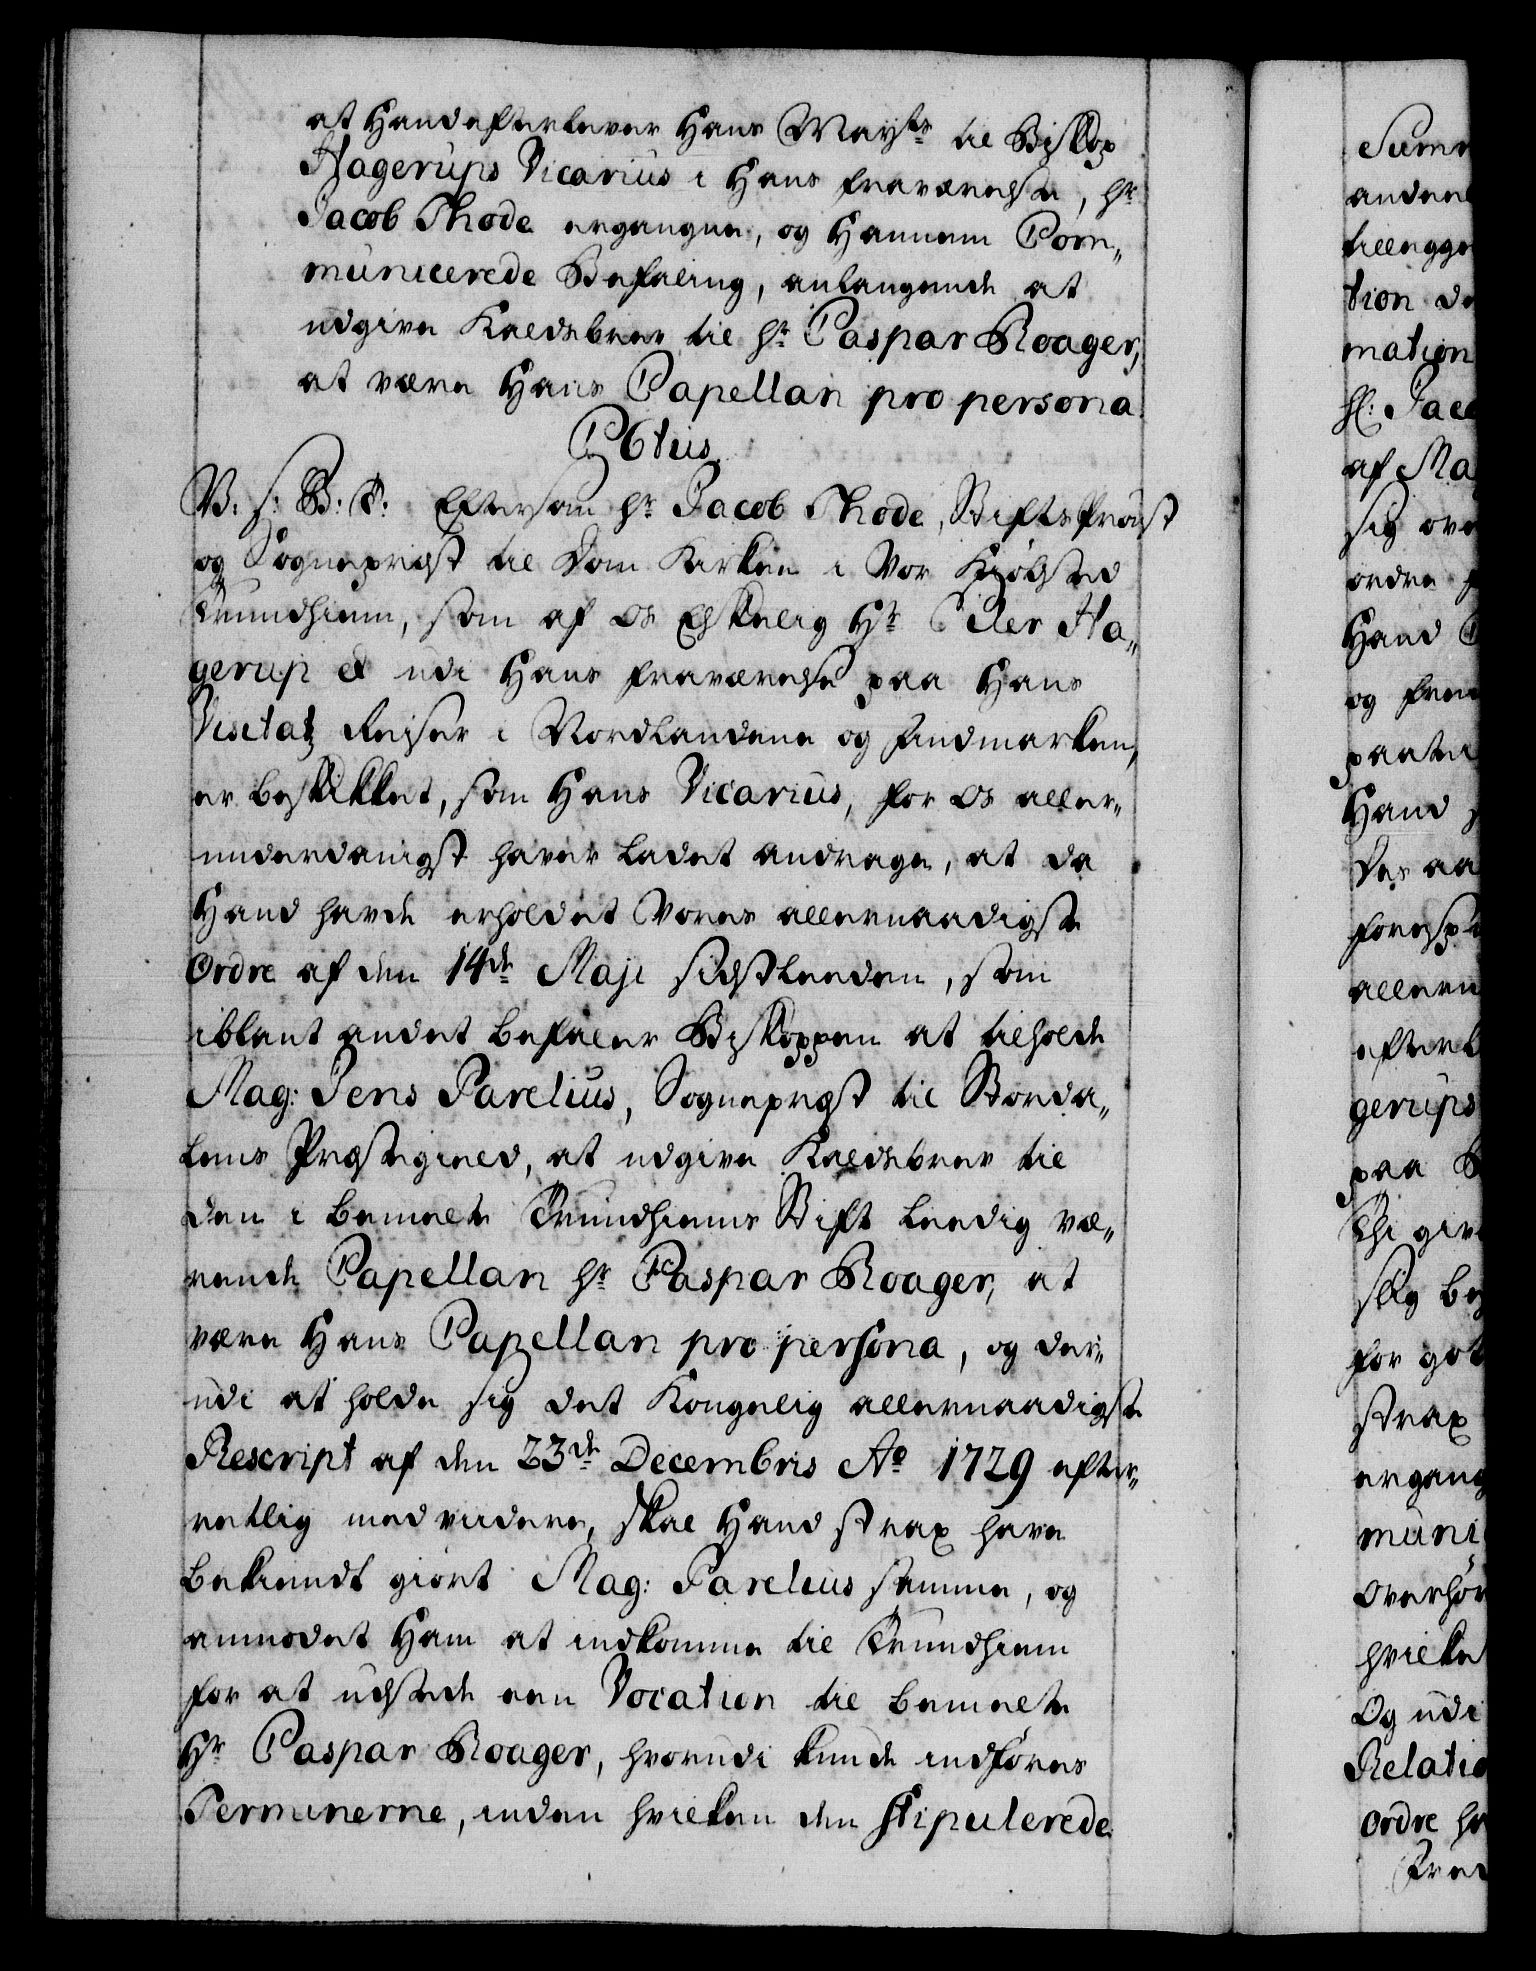 at Hand efterlever Hans Mayts til Biskop
Hagerups Vicarius i Hans fraværelse, hr
Jacob Thode ergangne, og Hannem Com„
municerede Befaling, anlangende at
udgive Kaldsbrev til hr Caspar Roager,
at være Hans Capellan pro persona
C6tus.
V. S: B: T: Eftersom hr Jacob Thode, Stifts Provst
og Sognepræst til Dom Kirken i Vor Kiøbsted
Trundhiem, som af os Elskelig Hr Eiler Ha„
gerup udi Hans fraværelse paa Hans
Visitatz Reiser i Nordlandene og Findmarken,
er beskikket, som Hans Vicarius, for os aller„
underdanigst haver ladet andrage, at da
Hand havde erholdet Vores allernaadigste
Ordre af den 14de Maji sidstleeden, som
iblant andet befaler Biskoppen at tilholde
Mag: Jens Parelius, Sognepræst til Storda„
lens Præstegield, at udgive Kaldsbrev til
den i bemelte Trundhiems Stift leedig væ„
rende Capellan hr Caspar Roager, at
være Hans Capellan pro persona, og der„
udi at holde sig det Kongelig allernaadigste
Rescript af den 23de Decembris Ao 1729 efter„
retlig med videre, skal Hand strax have
bekiendt giort Mag: Parelius samme, og
anmodet Ham at indkomme til Trundhiem
for at udstede een Vocation til bemelte
Hr Caspar Roager, hvorudi kunde indføres
Terminerne, inden hvilken den stipulerede
Sum
andre
tillegge
tion de
mation
Hr: Jaco
af Ma
sig ove
ordre
Hand
og frem
paate
Hand
Des aa
forsp
allern
efterl
gerups
paa
Thi give
slig be
for got
strax
ergang
muni
Overhør
hvilke
Og udi
Relatio
Ordre ha